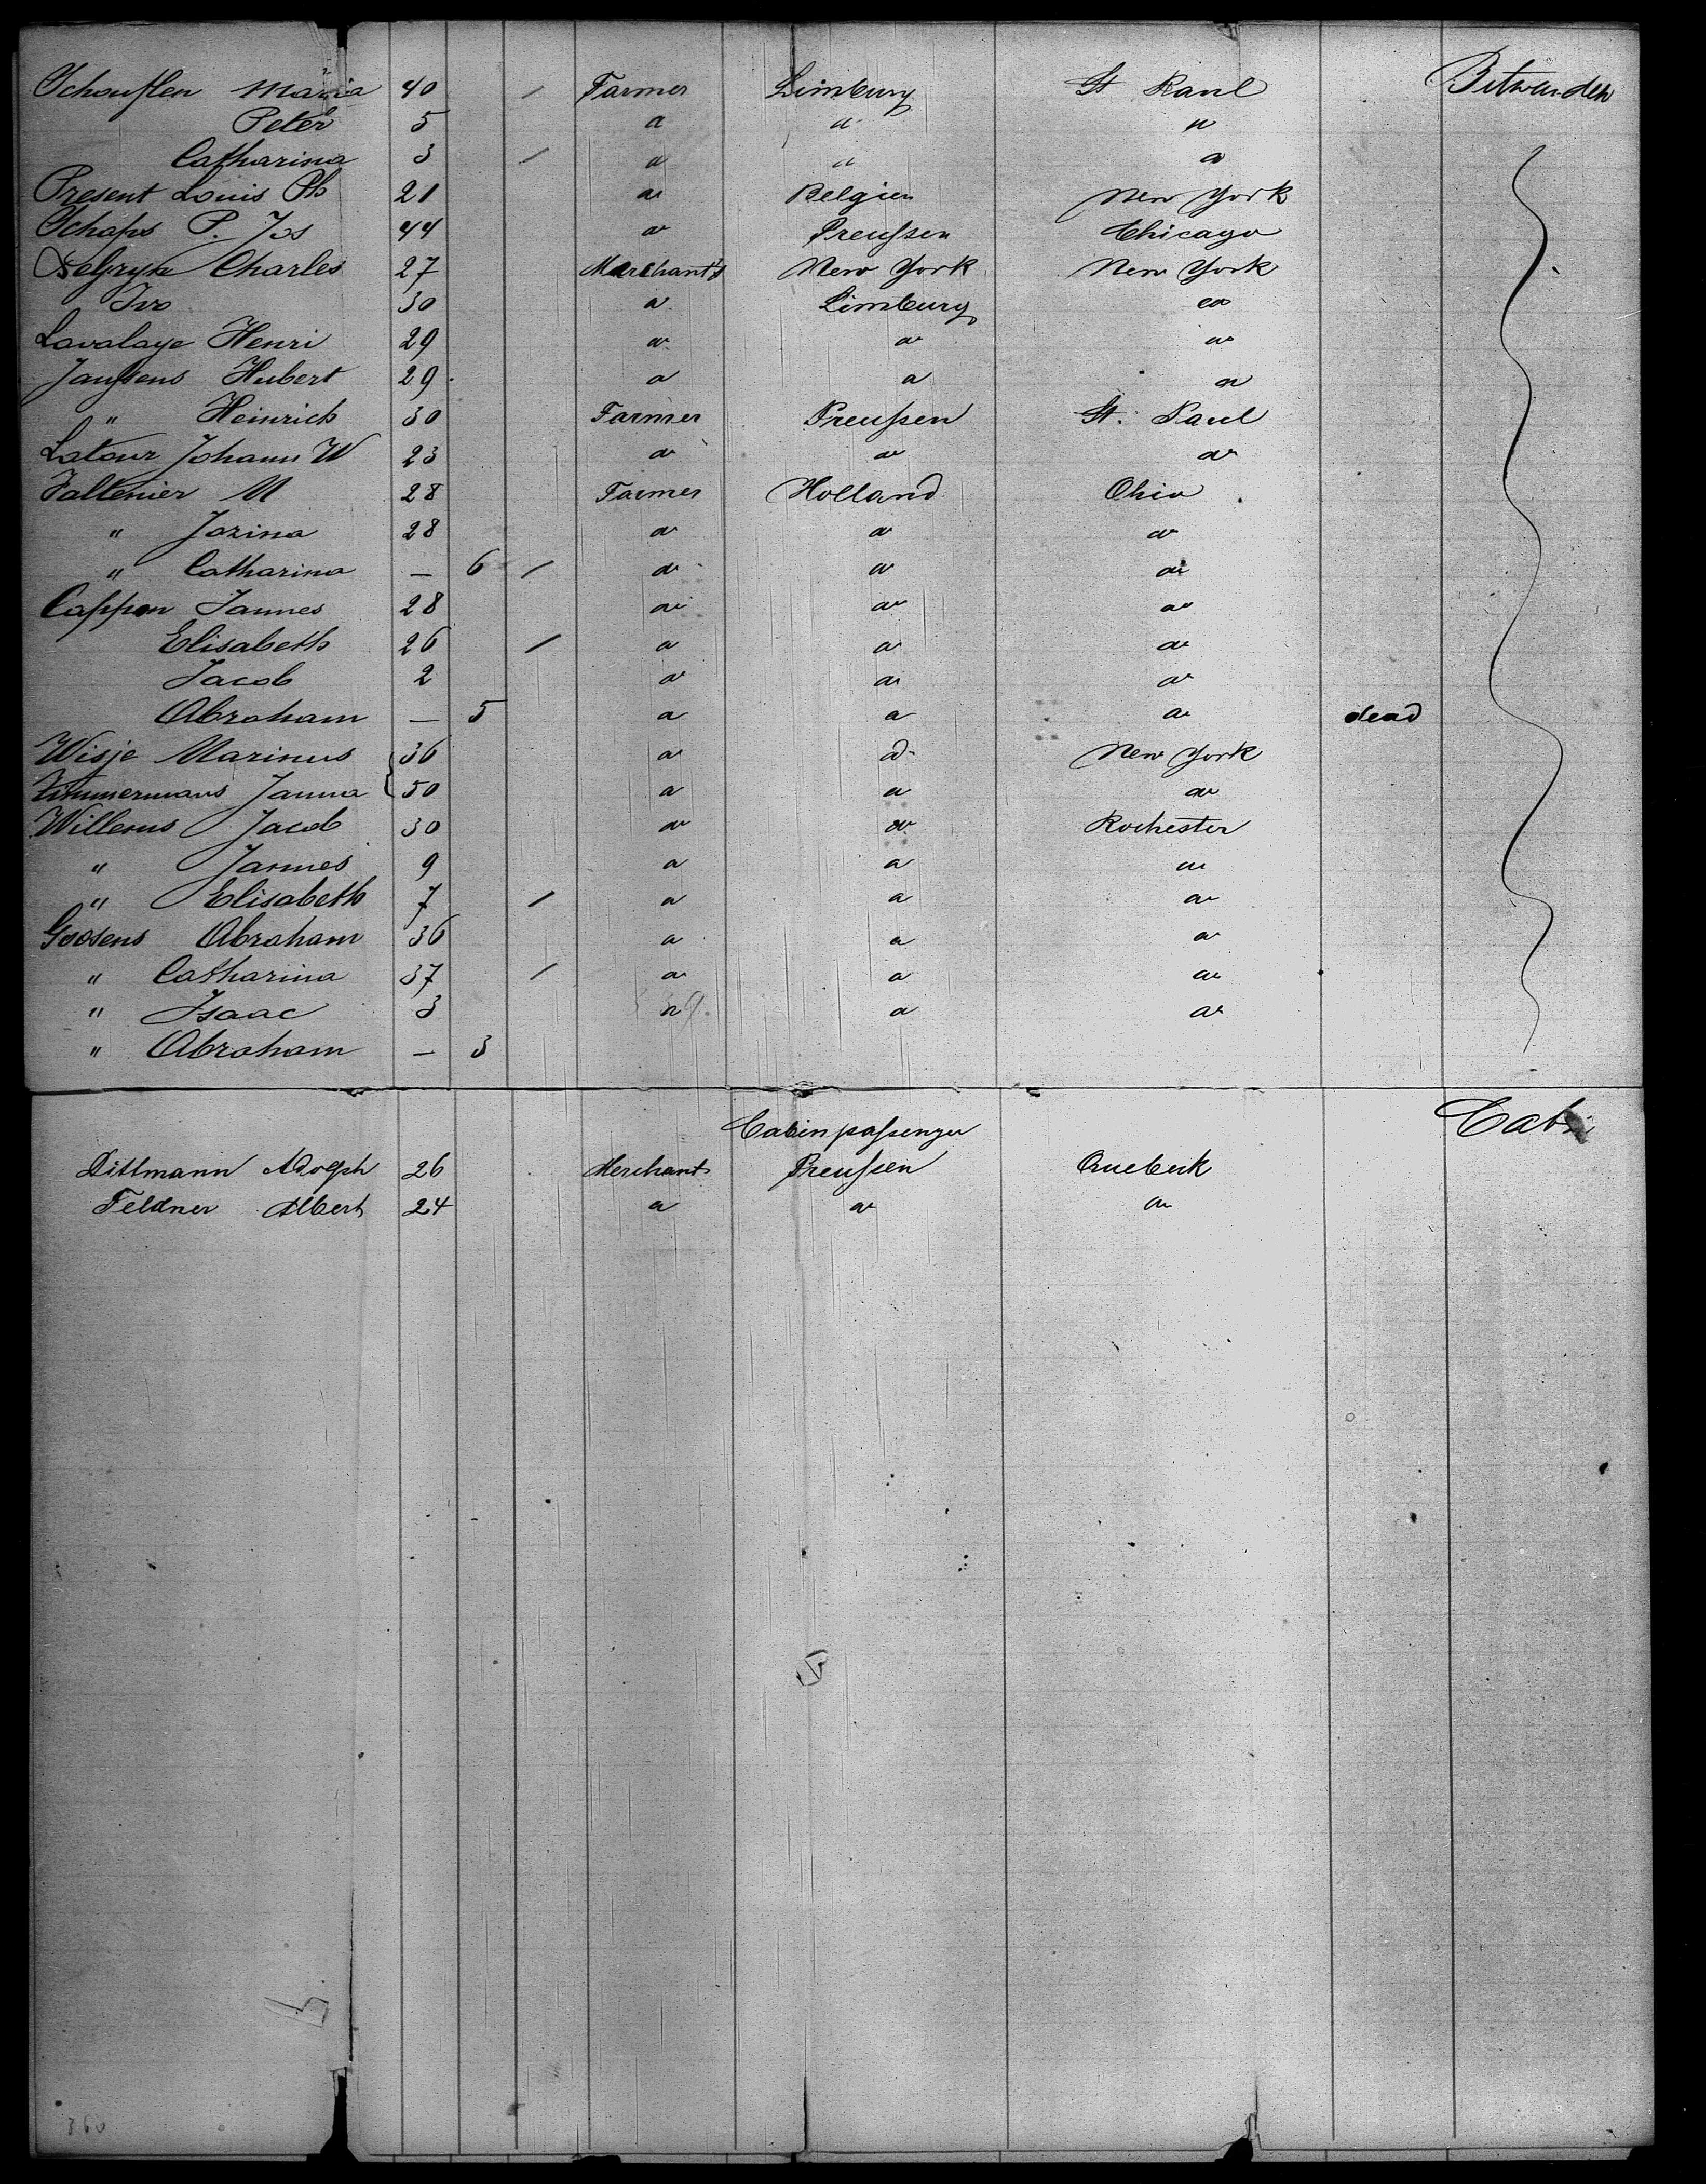 Schouflen Maria 40 / Farmer Limburg St Paul Between den
Peter 5 a a a
Catharina 3 / a a a
Present Louis Ph 21 a Belgien New York
Schaps P. Jos 44 a Preußen Chicago
Charles 27 Merchant New York New York
Ivo 30 a Limburg a
Lavalaye Henri 29 a a a
Janssens Hubert 29 a a a
" Heinrich 30 Farmer Preußen St. Paul
Latour Johann W 23 a a a
Faltenier M 28 Farmer Holland Ohio
" Jozina 28 a a a
" Catharina — 6 / a a a
Cappon Jannes 28 a a a
Elisabeth 26 / a a a
Jacob 2 a a a
Abraham — 5 a a a dead
Wisje Marinus 36 a a New York
Zimmermans Janna 50 a a a
Willems Jacob 30 a a Rochester
" Jannes 9 a a a
" Elisabeth 7 / a a a
Goosens Abraham 36 a a a
" Catharina 37 / a a a
" Isaac 3 a a a
" Abraham — 3
Cabinpassenger Cabin
Dittmann Adolph 26 Merchant Preußen Quebeck
Feldner Albert 24 a a a
360